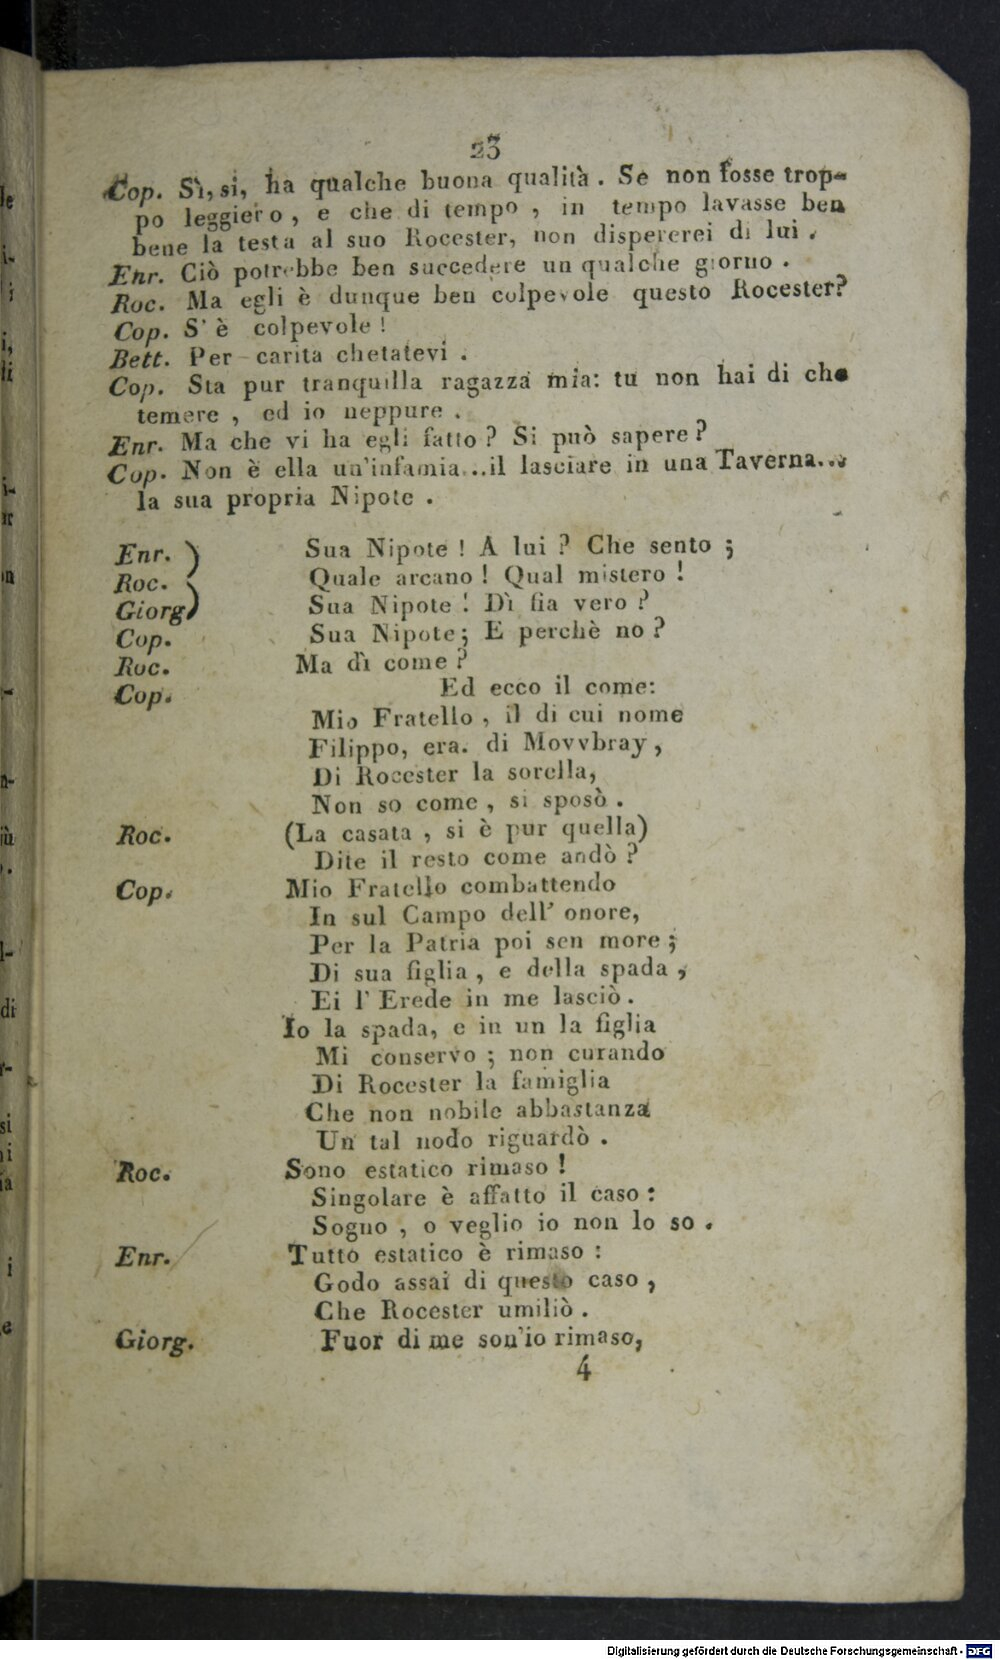 23
Cop. Sì, si, ha qualche buona qualità. Se non fosse trop-
po leggiero, e che di tempo, in tempo lavasse ben
bene la testa al suo Rocester, non dispererei di lui.
Enr. Ciò potrebbe ben succedere un qualche giorno.
Roc. Ma egli è dunque ben colpevole questo Rocester?
Cop. S' è colpevole!
Bett. Per carita chetatevi.
Cop. Sta pur tranquilla ragazza mia: tu non hai di che
temere, ed io neppure.
Enr. Ma che vi ha egli fatto? Si può sapere?
Cop. Non è ella un'infamia...il lasciare in una Taverna...
la sua propria Nipote.
Enr. Sua Nipote! A lui? Che sento;
Roc. Quale arcano! Qual mistero!
Giorg. Sua Nipote! Dì fia vero?
Cop. Sua Nipote; E perchè no?
Roc. Ma dì come?
Cop. Ed ecco il come:
Mio Fratello, il di cui nome
Filippo, era. di Movvbray,
Di Rocester la sorella,
Non so come, si sposò.
Roc. (La casata, si è pur quella)
Dite il resto come andò?
Cop. Mio Fratello combattendo
In sul Campo dell' onore,
Per la Patria poi sen more;
Di sua figlia, e della spada,
Ei l' Erede in me lasciò.
Io la spada, e in un la figlia
Mi conservo; non curando
Di Rocester la famiglia
Che non nobile abbastanza
Un tal nodo riguardò.
Roc. Sono estatico rimaso!
Singolare è affatto il caso:
Sogno, o veglio io non lo so.
Enr. Tutto estatico è rimaso:
Godo assai di questo caso,
Che Rocester umiliò.
Giorg. Fuor di me son'io rimaso,
4
Digitalisierung gefördert durch die Deutsche Forschungsgemeinschaft - DFG